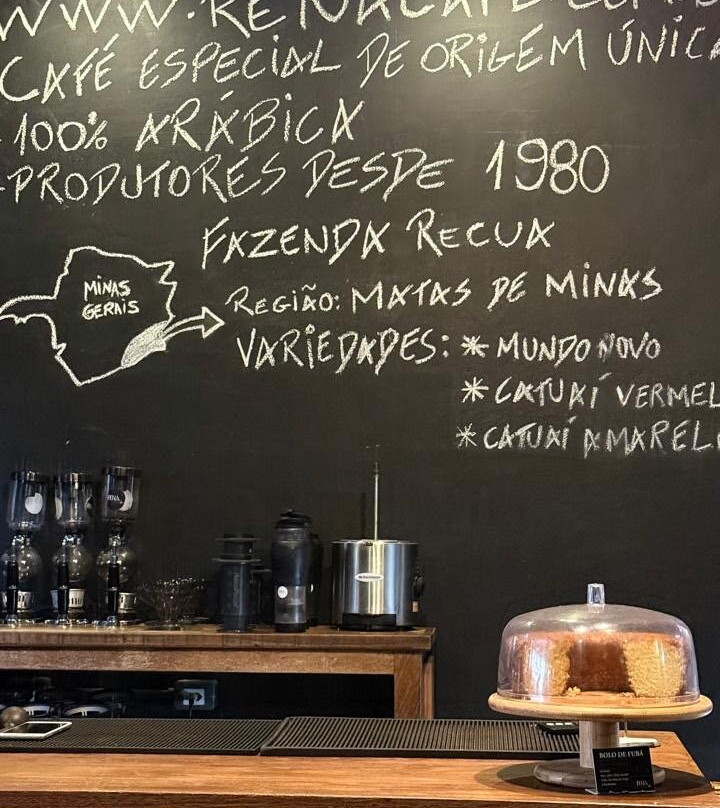 CAFÉ ESPECIAL DE ORIGEM ÚNICA
100% ARÁBICA
-PRODUTORES DESDE 1980
FAZENDA RECUA
MINAS
GERAIS
REGIÃO: MATAS DE MINAS
VARIEDADES: * MUNDO NOVO
* CATUAÍ VERMEL
* CATUAÍ AMAREL
BOLO DE FUBÁ